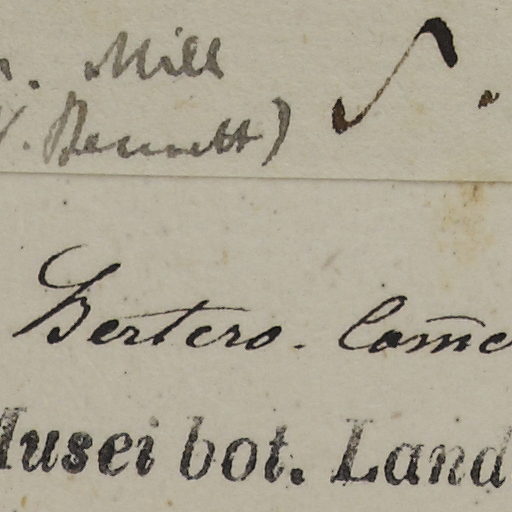 Mill S.
Bennett)
Bertero. Com̄e
Musei bot. Land